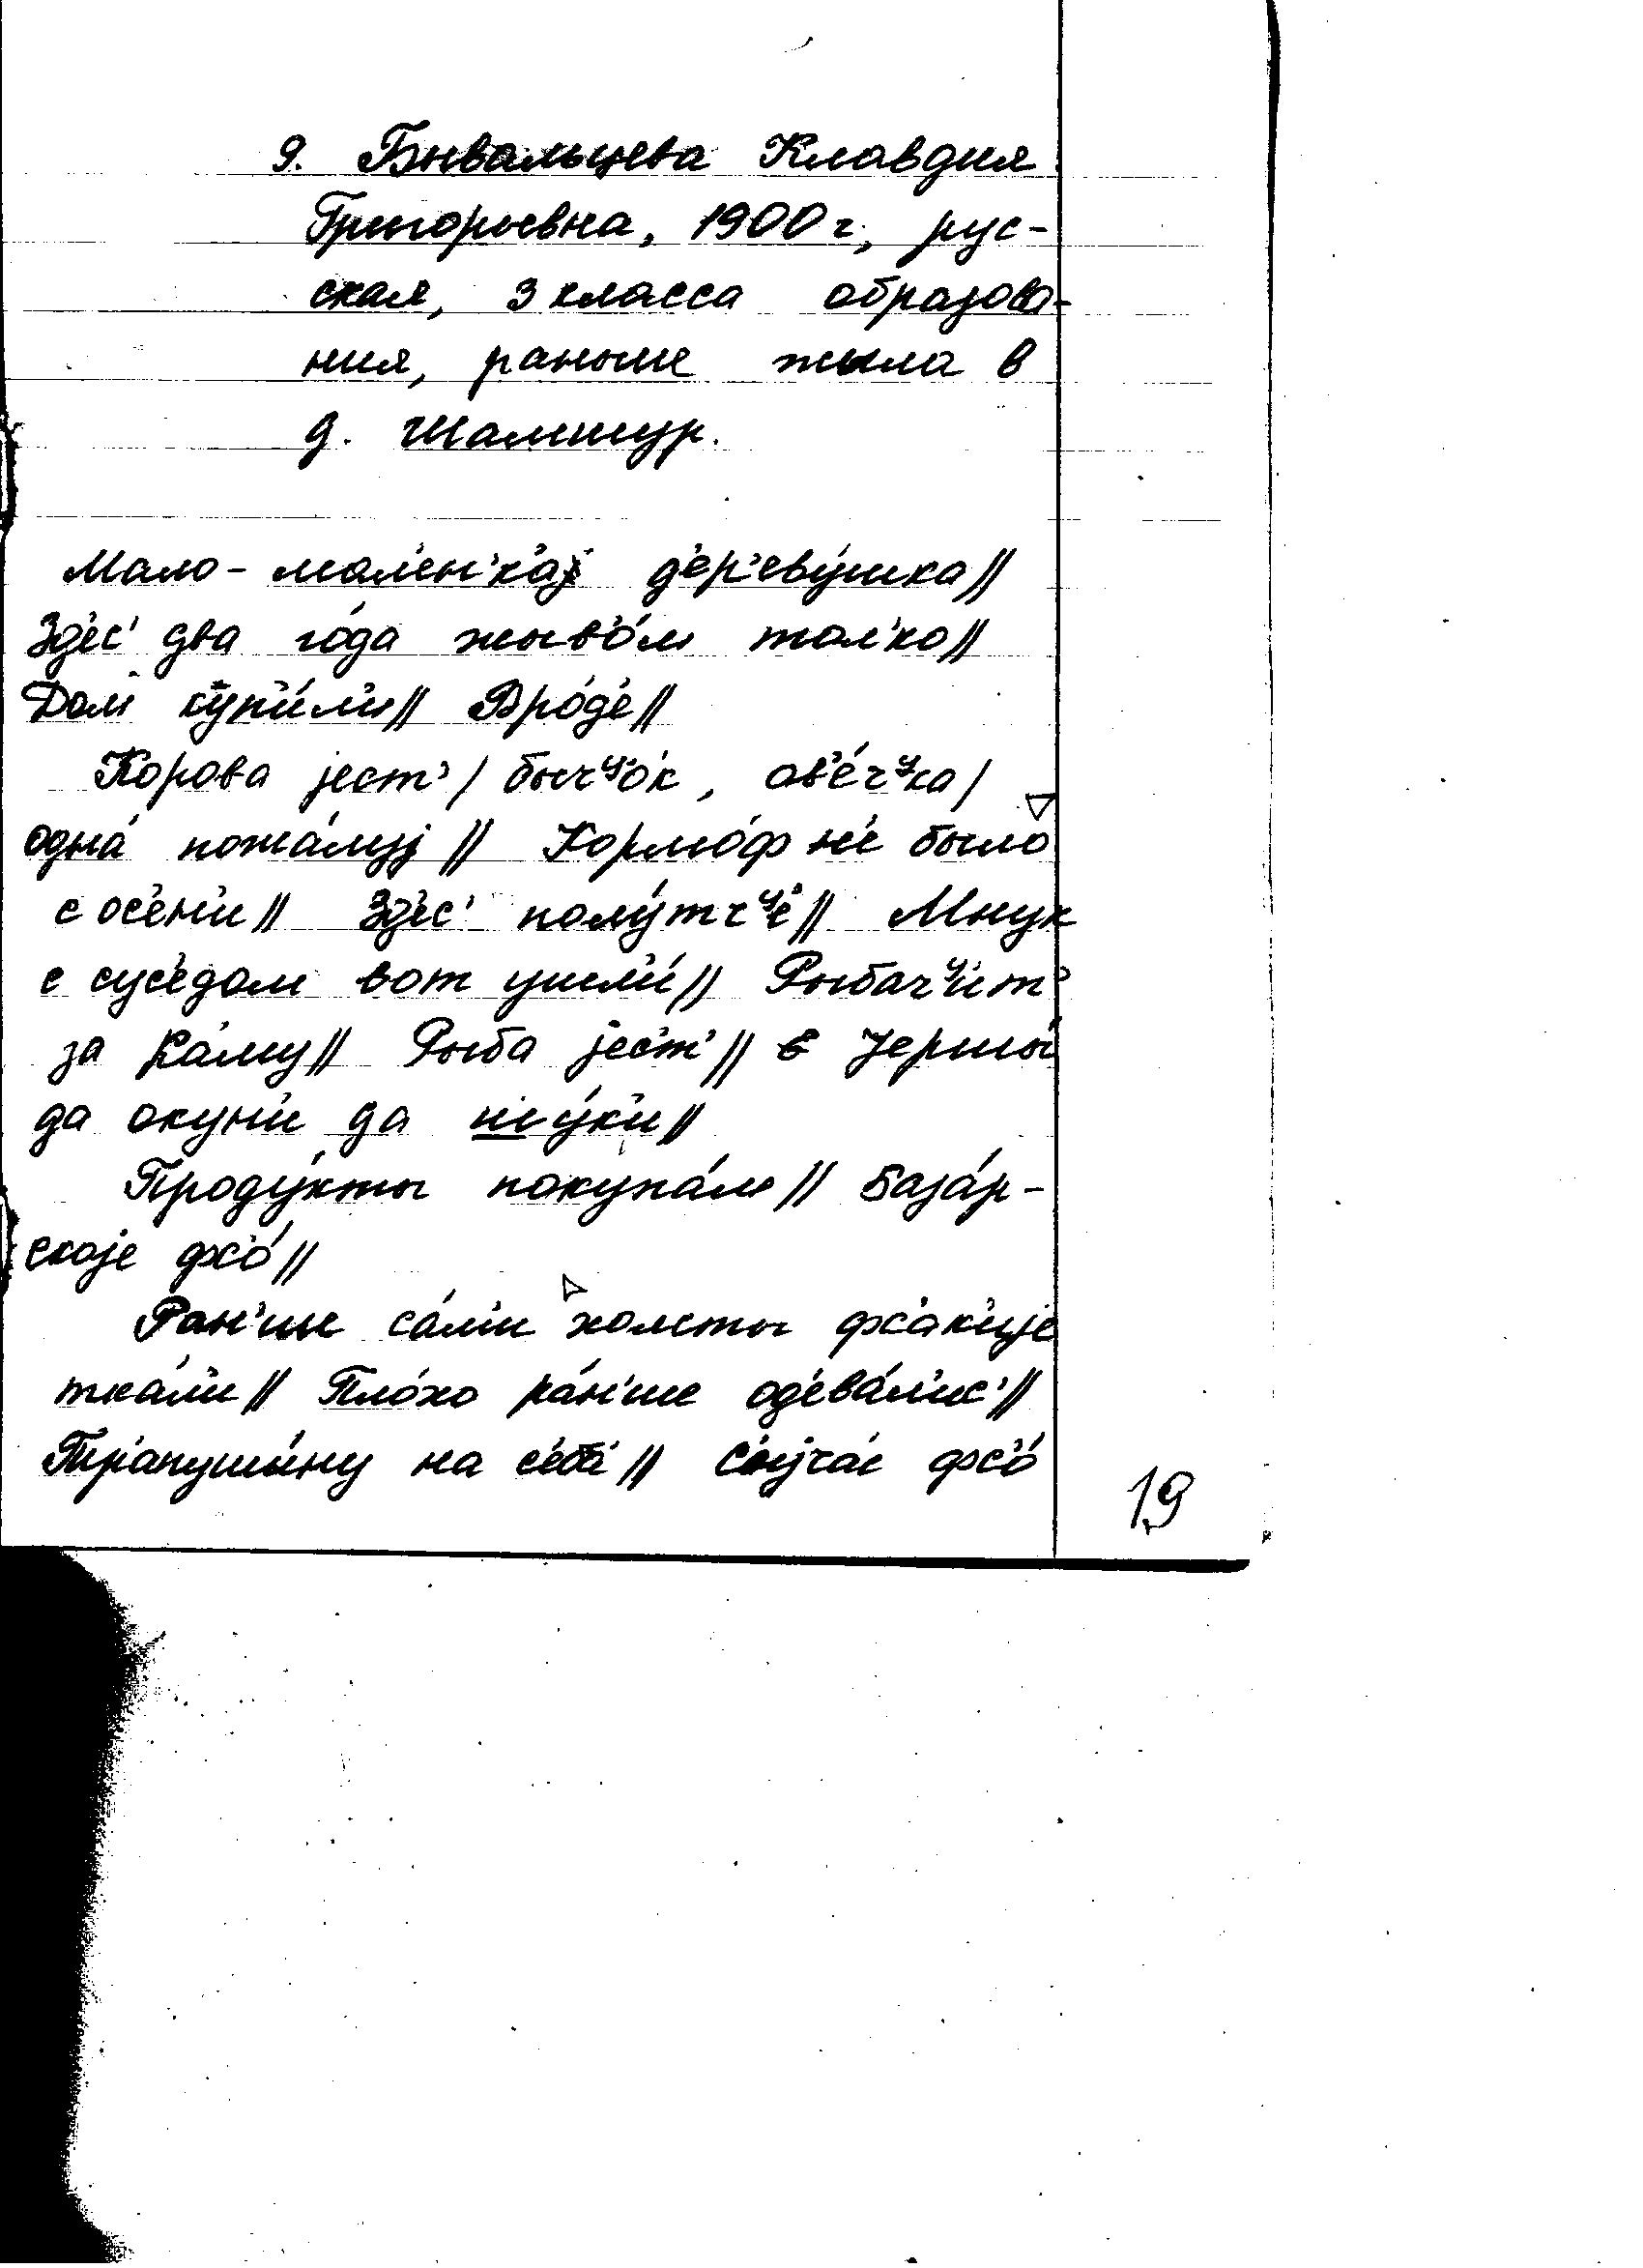 9. Бывальцева Клавдия
Григорьевна, 1900 г., рус-
ская, 3 класса образова-
ния, раньше жила в
д. Шамшур.
Мало-мал'ен'кај д'ер'еву́шка//
Зд'ес' два го́да жыв'о́м тол'ко//
Дом куп'и́л'и// Вро́д'е//
Корова јест'/ быч^ч'о́к, ов'е́ч^чка/
одна́ пожа́луј// Кормо́ф н'е было
с ос'ен'и// Зд'ес' полу́тч^ч'е// Мнук
с сус'едом вот ушл'и́// Рыбач^ч'ит'
за Ка́му// Рыба јес'т'// Јершы́
да окун'и да шу́к'и//
Проду́кты покупа́м// База́р-
скоје фс'о́//
Ран'ше са́м'и холсты фс'ак'ије
тка́л'и// Пло́хо ра́н'ше од'ева́л'ис'//
Тр'апушы́ну на с'еб'а// С'ијча́с фс'о́
19